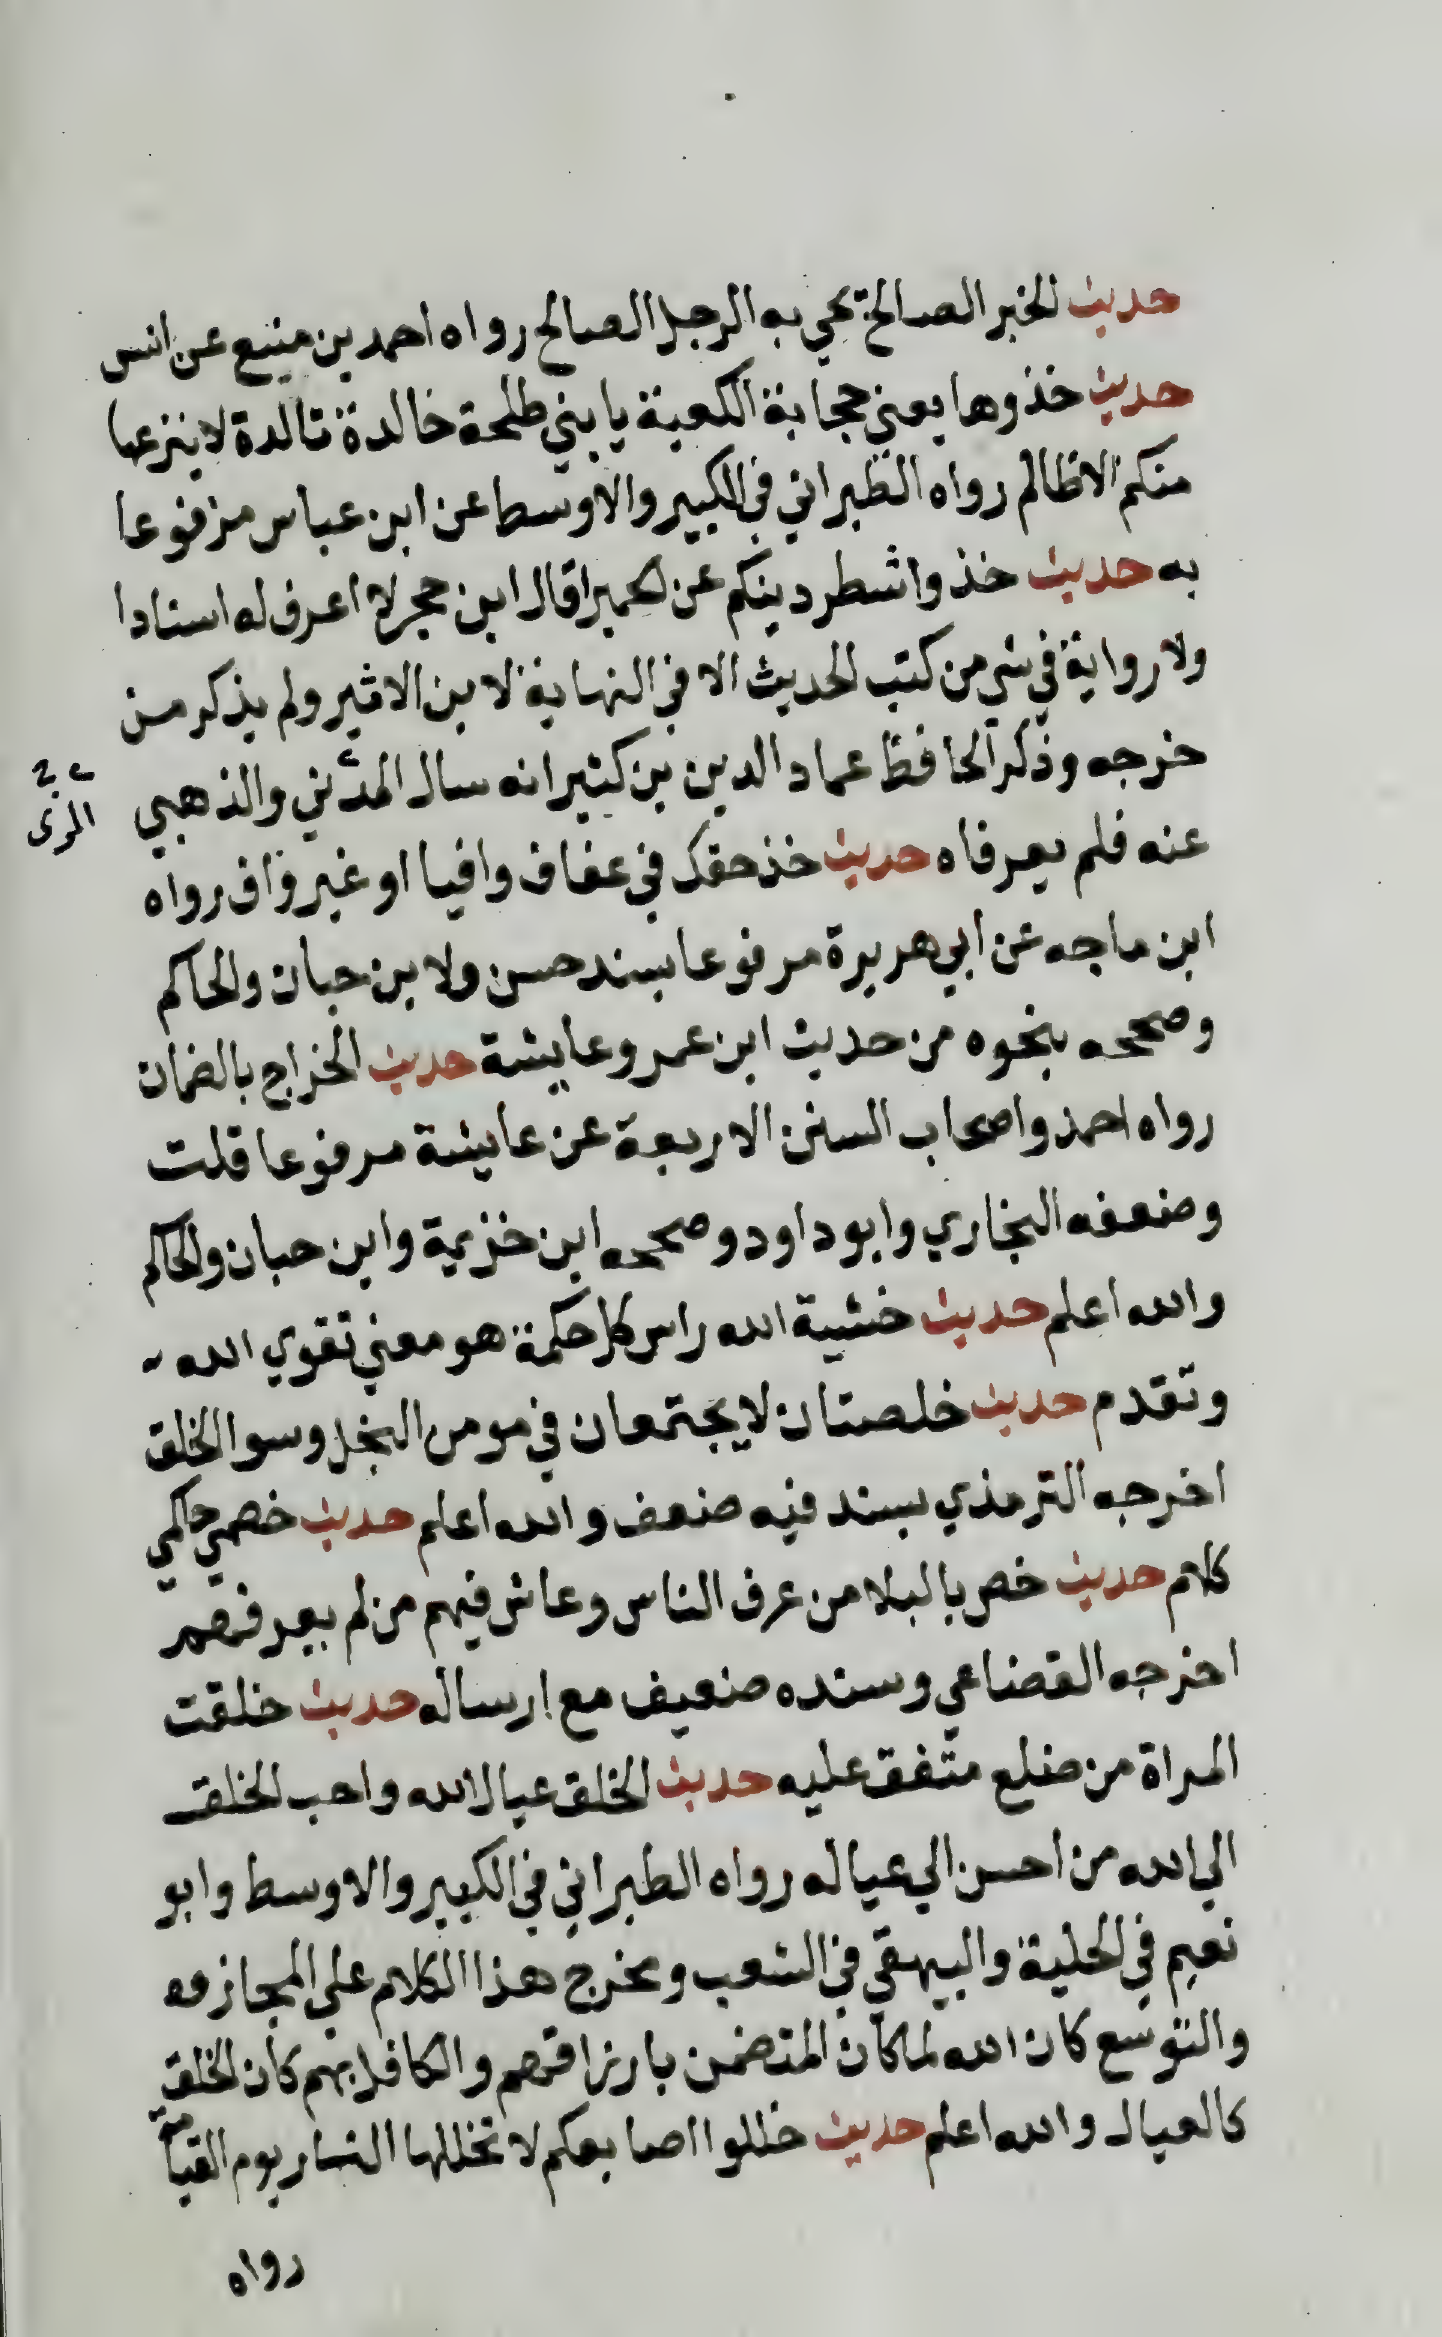 حديث الخبر الصالح يجي به الرجل الصالح رواه احمد بن منيع عن انس
حديث خذوها يعني حجابة الكعبة يا بني طلحة خالدة تالدة لا ينزعها
منكم الا ظالم رواه الطبراني في الكبير والاوسط عن ابن عباس مرفوعا
به حديث خذوا شطر دينكم عن الحميرا قال ابن حجر لا اعرف له اسنادا
ولا رواية في شي من كتب الحديث الا في النهاية لابن الاثير ولم يذكر من
خرجه وذكر الحافظ عماد الدين بن كثير انه سال المدني والذهبي
المزى
عنه فلم يعرفاه حديث خذ حقك في عفاف وافيا او غير واف رواه
ابن ماجه عن ابي هريرة مرفوعا بسند حسن ولابن حبان والحاكم
وصححه بنحوه من حديث ابن عمر وعايشة حديث الخراج بالضمان
رواه احمد واصحاب السنن الاربعة عن عايشة مرفوعا قلت
وضعفه البخاري وابو داود وصححه ابن خزيمة وابن حبان والحاكم
والله اعلم حديث خشية الله راس كل حكمة هو معني تقوي الله
وتقدم حديث خلصتان لا يجتمعان في مومن البخل وسوا الخلق
اخرجه الترمذي بسند فيه ضعف والله اعلم حديث خصمي حاكمي
كلام حديث خص بالبلا من عرف الناس وعاش فيهم من لم يعرفهم
اخرجه القضاعي وسنده ضعيف مع ارساله حديث خلقت
المراة من ضلع متفق عليه حديث الخلق عيال الله واحب الخلق
الي الله من احسن الي عياله رواه الطبراني في الكبير والاوسط وابو
نعيم في الحلية والبيهقي في الشعب ومخرج هذا الكلام علي المجاز
والتوسع كان الله لما كان المتضمن بارزاقهم والكافل بهم كان الخلق
كالعيال والله اعلم حديث خللوا اصابعكم لا تخللها النار يوم القيامة
رواه